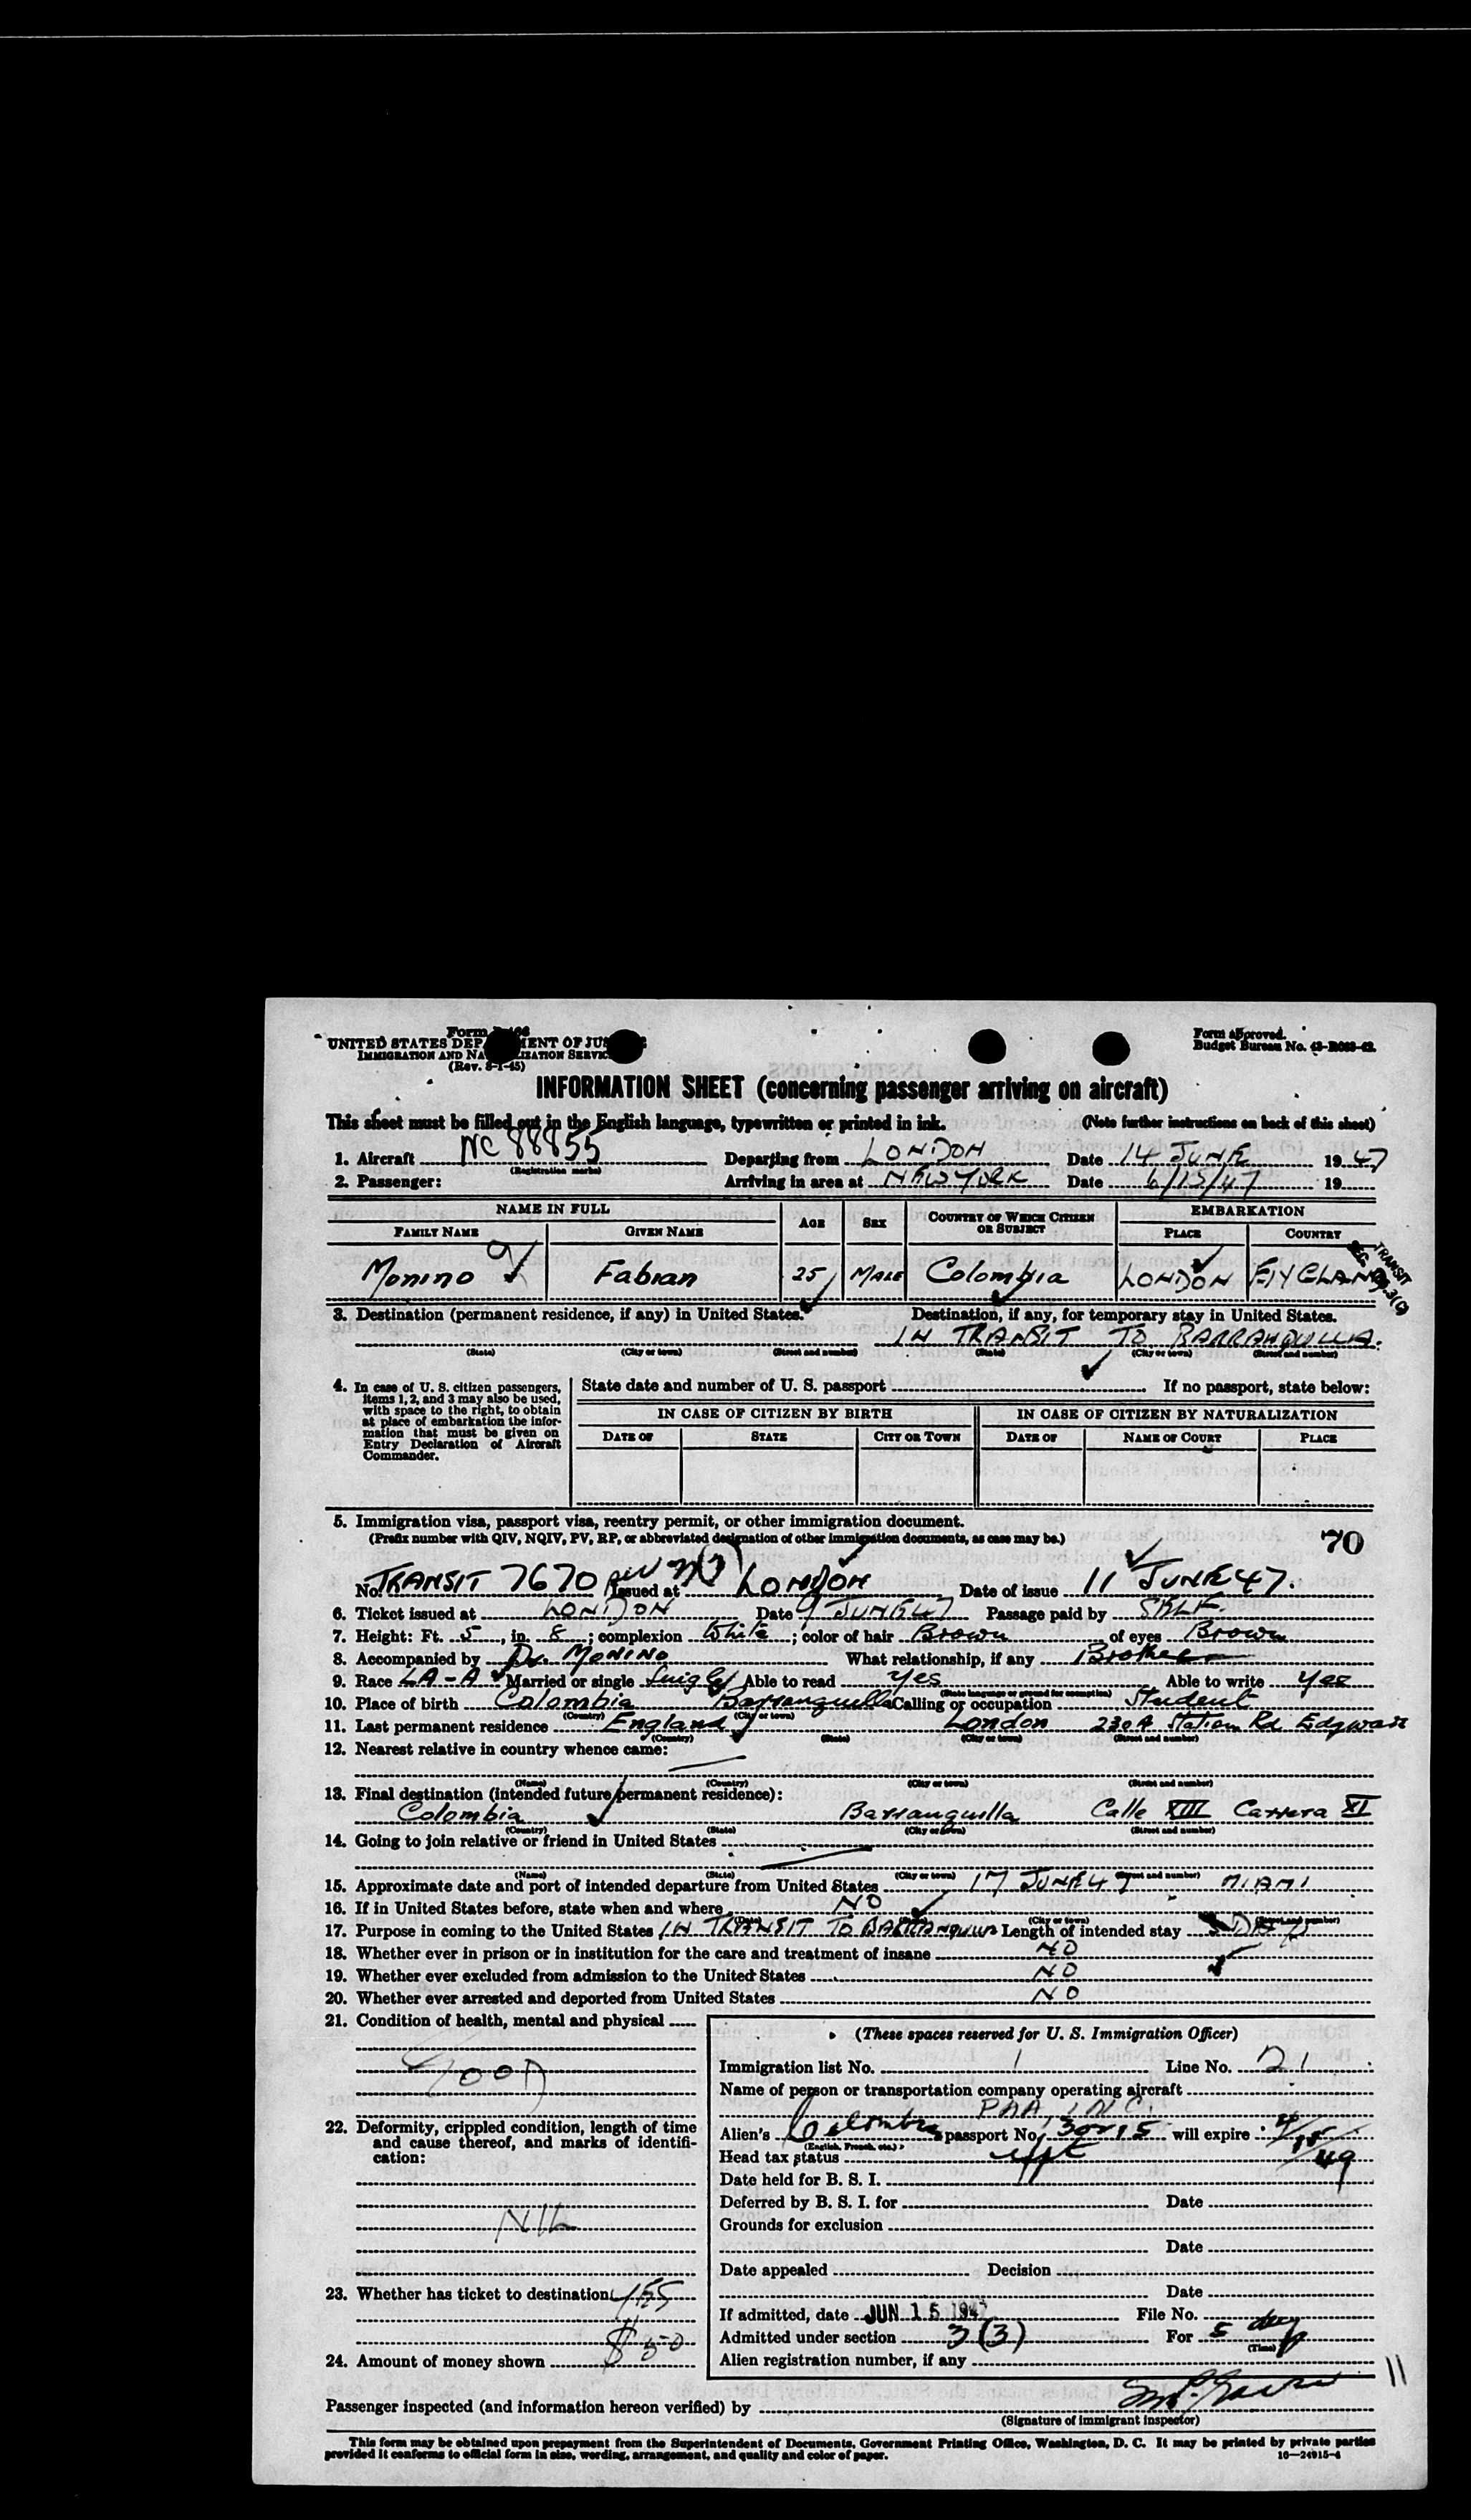 Form I-466
UNITED STATES DEPARTMENT OF JUSTICE
IMMIGRATION AND NATURALIZATION SERVICE
(Rev. 8-1-45)
Form approved.
Budget Bureau No. 43-R083-42.
INFORMATION SHEET (concerning passenger arriving on aircraft)
This sheet must be filled out in the English language, typewritten or printed in ink. (Note further instructions on back of this sheet)
1. Aircraft NC 88855 Departing from LONDON Date 14 JUNE 1947
(Registration marks)
2. Passenger: Arriving in area at NEW YORK Date 6/15/47 19
NAME IN FULL AGE SEX COUNTRY OF WHICH CITIZEN OR SUBJECT EMBARKATION
FAMILY NAME GIVEN NAME PLACE COUNTRY
Monino Fabian 25 MALE Colombia LONDON ENGLAND
TRANSIT
SEC. 3(3)
3. Destination (permanent residence, if any) in United States. Destination, if any, for temporary stay in United States.
IN TRANSIT TO BARRANQUILLA.
(State) (City or town) (Street and number) (State) (City or town) (Street and number)
4. In case of U. S. citizen passengers, items 1, 2, and 3 may also be used, with space to the right, to obtain at place of embarkation the information that must be given on Entry Declaration of Aircraft Commander.
State date and number of U. S. passport If no passport, state below:
IN CASE OF CITIZEN BY BIRTH IN CASE OF CITIZEN BY NATURALIZATION
DATE OF STATE CITY OR TOWN DATE OF NAME OF COURT PLACE
5. Immigration visa, passport visa, reentry permit, or other immigration document.
(Prefix number with QIV, NQIV, PV, RP, or abbreviated designation of other immigration documents, as case may be.) 70
No. TRANSIT 7670 Issued at LONDON Date of issue 11 JUNE 47.
6. Ticket issued at LONDON Date 9 JUNE 47 Passage paid by SELF.
7. Height: Ft. 5, in. 8; complexion White; color of hair Brown of eyes Brown
8. Accompanied by Dr. MONINO What relationship, if any Brother
9. Race LA-A Married or single Single Able to read yes Able to write yes
(State language or ground for exemption)
10. Place of birth Colombia Barranquilla Calling or occupation Student
(Country) (City or town)
11. Last permanent residence England London 230A Station Rd Edgware
(Country) (State) (City or town) (Street and number)
12. Nearest relative in country whence came:
(Name) (Country) (City or town) (Street and number)
13. Final destination (intended future permanent residence):
Colombia Barranquilla Calle XIII Carrera XI
(Country) (State) (City or town) (Street and number)
14. Going to join relative or friend in United States
(Name) (State) (City or town) (Street and number)
15. Approximate date and port of intended departure from United States 17 JUNE 47 MIAMI
16. If in United States before, state when and where NO
(Date) (State) (City or town) (Street and number)
17. Purpose in coming to the United States IN TRANSIT TO BARRANQUILLA Length of intended stay
18. Whether ever in prison or in institution for the care and treatment of insane NO
19. Whether ever excluded from admission to the United States NO
20. Whether ever arrested and deported from United States NO
21. Condition of health, mental and physical
GOOD
22. Deformity, crippled condition, length of time and cause thereof, and marks of identification:
NIL
23. Whether has ticket to destination YES
$50
24. Amount of money shown
(These spaces reserved for U. S. Immigration Officer)
Immigration list No. 1 Line No. 21
Name of person or transportation company operating aircraft
PAA, INC.
Alien's Colombia passport No. will expire 4/15/49
(English, French, etc.)
Head tax status
Date held for B. S. I.
Deferred by B. S. I. for Date
Grounds for exclusion
Date
Date appealed Decision
Date
If admitted, date JUN 15 1947 File No.
Admitted under section 3(3) For 5 days
(Time)
Alien registration number, if any
11
Passenger inspected (and information hereon verified) by
(Signature of immigrant inspector)
This form may be obtained upon prepayment from the Superintendent of Documents, Government Printing Office, Washington, D. C. It may be printed by private parties
provided it conforms to official form in size, wording, arrangement, and quality and color of paper. 16—24915-4